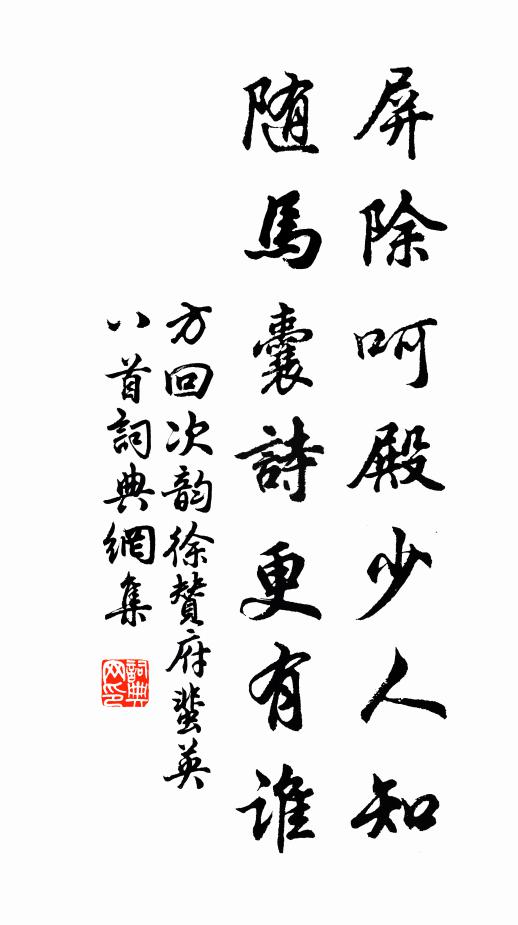 屏除呵殿少人知
随馬囊詩更有誰
方回次韵徐贊府蜚英
八首詞典網集
詞典網印